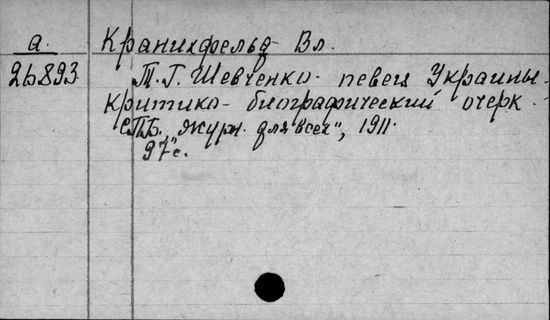 а. Кранихфельд Вл.
26893 Т. Г. Шевченко - певец Украины.
Критико-биографический очерк.
СПБ, "Журн. для всех", 1911.
97 с.